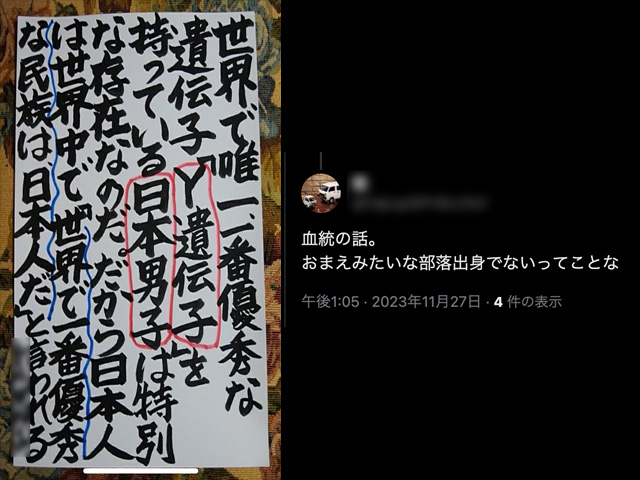 世界で唯一、一番優秀な
遺伝子「Y遺伝子」を
持っている日本男子は特別
な存在なのだ。だから日本人
は世界中で「世界で一番優秀
な民族は、日本人だ」と言われる
血統の話。
おまえみたいな部落出身でないってことな
午後1:05 · 2023年11月27日 · 4 件の表示